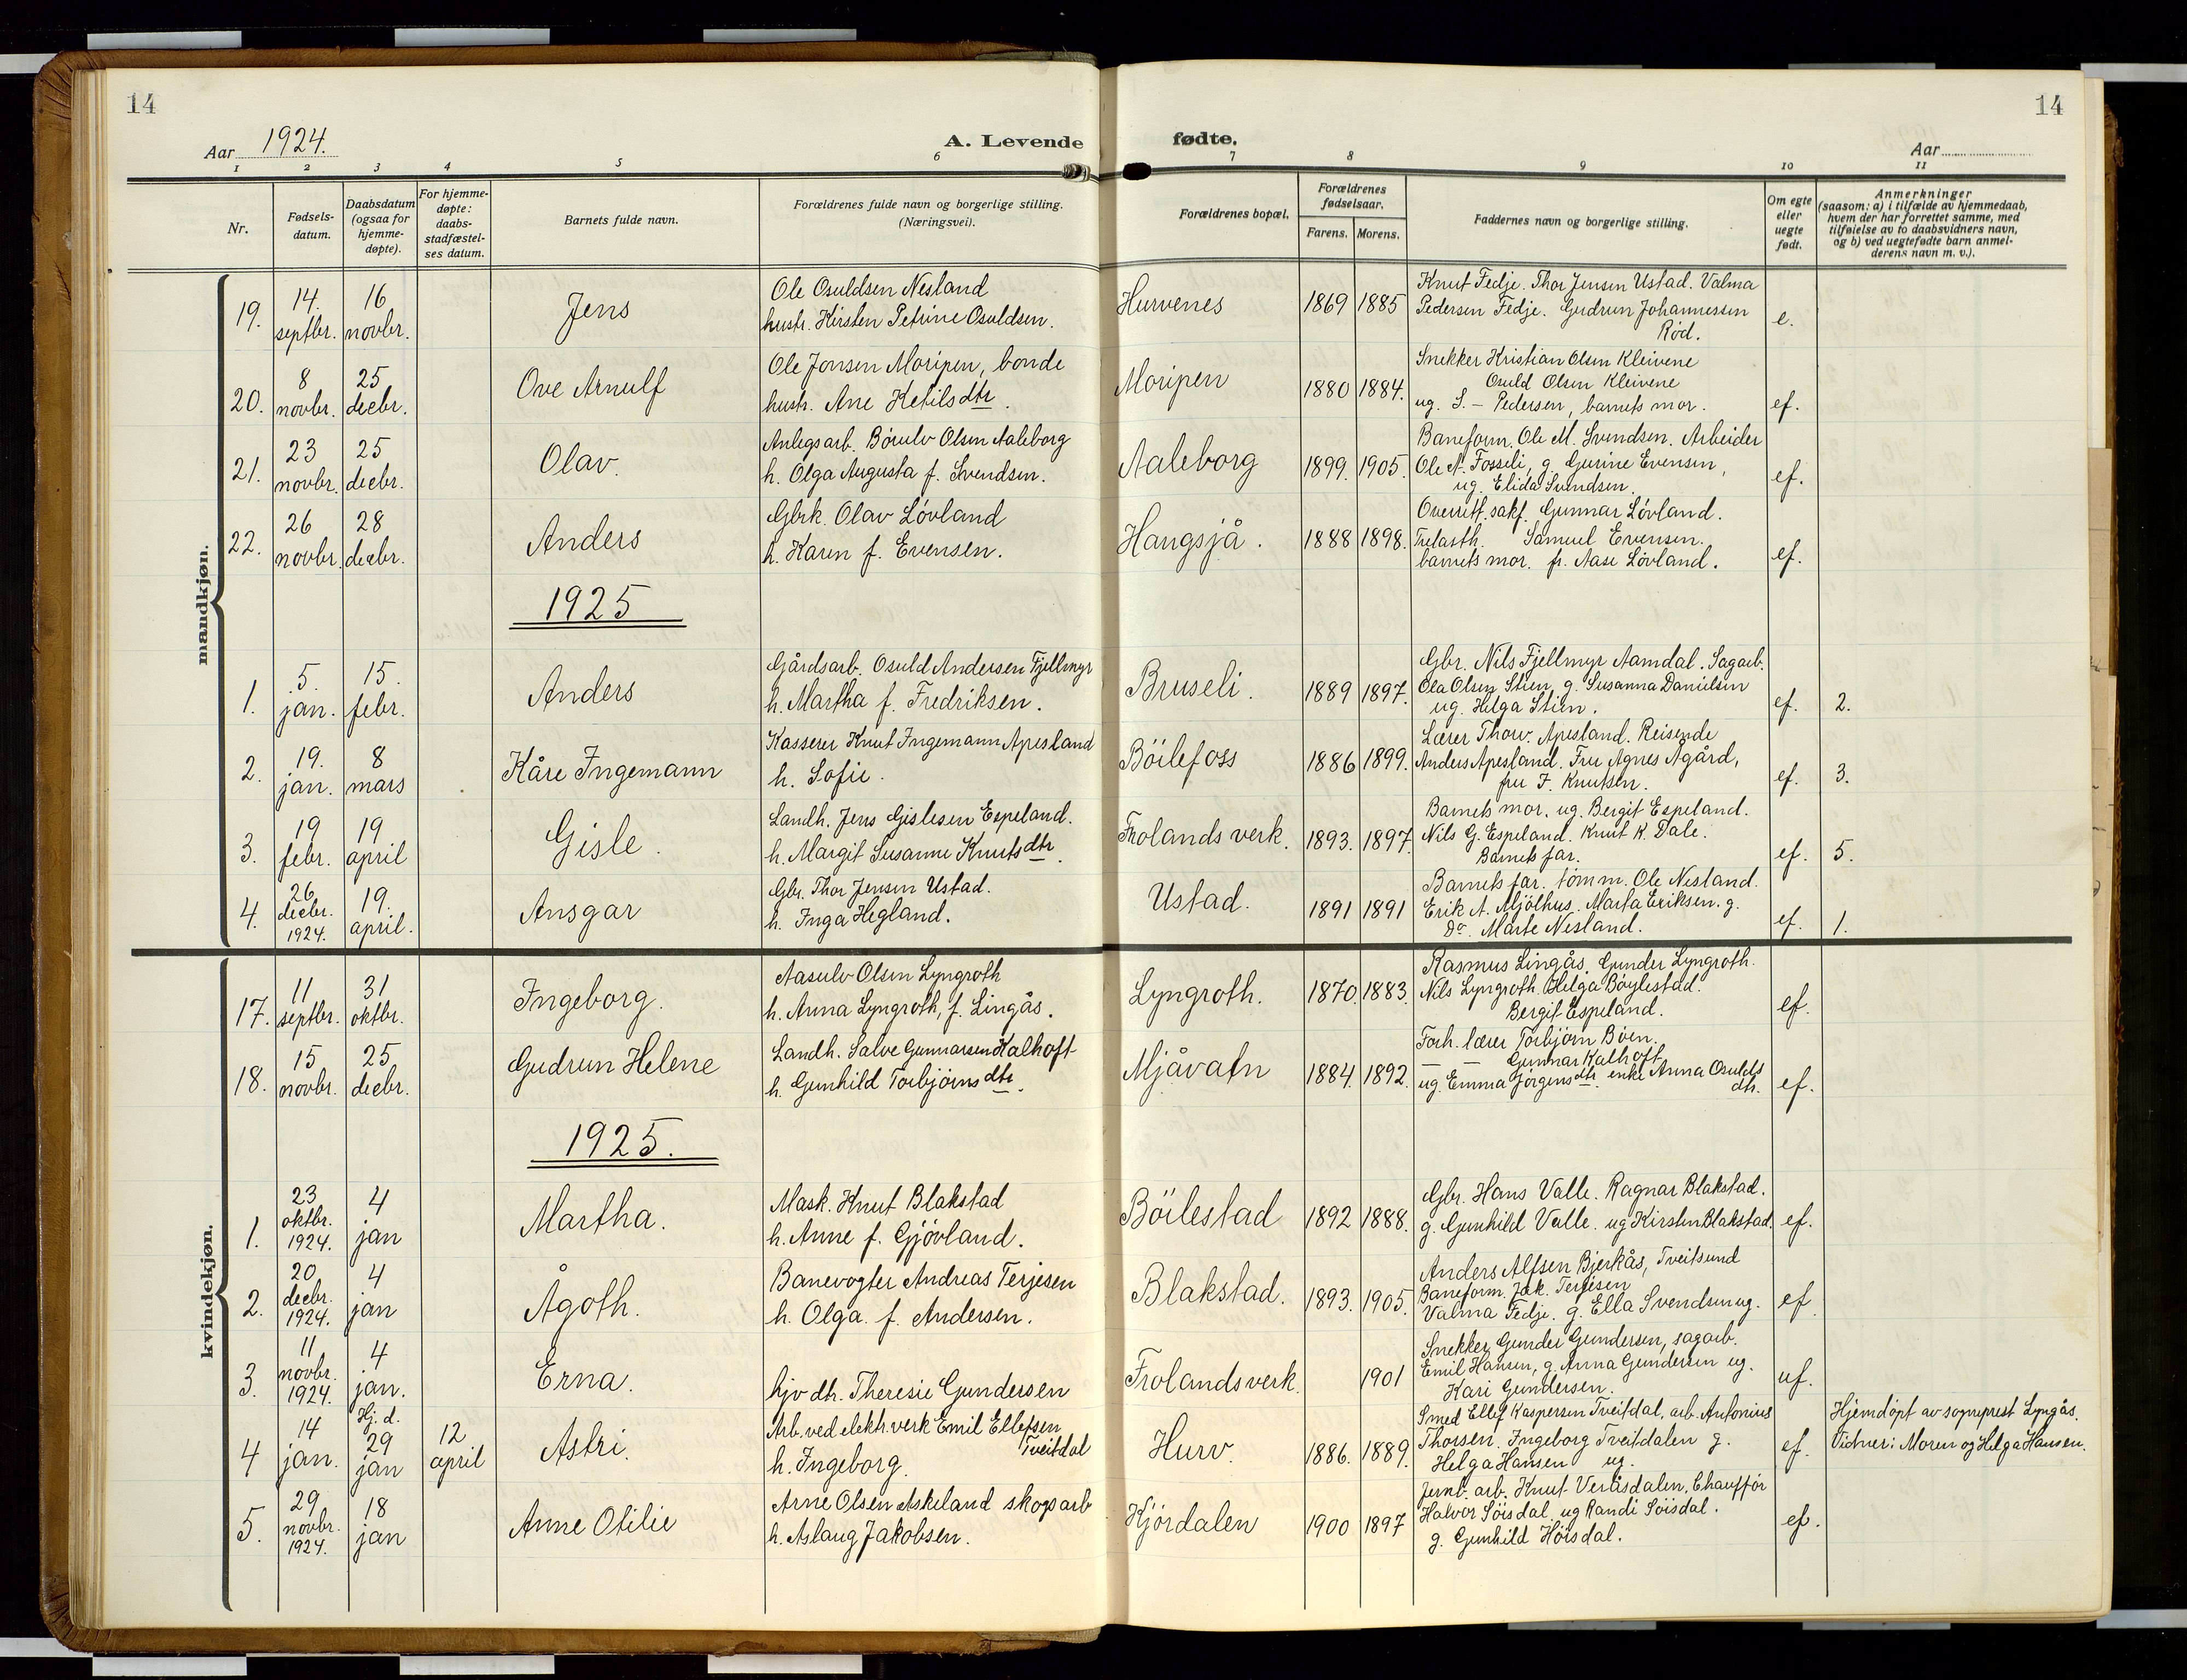 14
14
Aar 1924.
A. Levende fødte.
Aar
1 2 3 4 5 6 7 8 9 10 11
Nr.
Fødsels-
datum.
Daabsdatum
(ogsaa for
hjemme-
døpte).
For hjemme-
døpte:
daabs-
stadfæstel-
ses datum.
Barnets fulde navn.
Forældrenes fulde navn og borgerlige stilling.
(Næringsvei).
Forældrenes bopæl.
Forældrenes
fødselsaar.
Farens. Morens.
Faddernes navn og borgerlige stilling.
Om egte
eller
uegte
født.
Anmerkninger
(saasom: a) i tilfælde av hjemmedaab,
hvem der har forrettet samme, med
tilføielse av to daabsvidners navn,
og b) ved uegtefødte barn anmel-
derens navn m. v.).
mandkjøn.
19.
14.
septbr.
16
novbr.
Jens
Ole Osuldsen Nesland
hustr. Kirsten Petrine Osuldsen.
Hurvenes
1869 1885
Knut Fedje. Thor Jensen Ustad. Valma
Pedersen Fedje. Gudrun Johannessen
Rød.
e.
20.
8
novbr.
25
decbr.
Ove Arnulf
Ole Jonsen Moripen, bonde
hustr. Ane Ketilsdtr.
Moripen
1880 1884.
Snekker Kristian Olsen Kleivene
Osuld Olsen Kleivene
ug. S. – Pedersen, barnets mor.
ef.
21.
23
novbr.
25
decbr.
Olav.
Anlegsarb. Börulv Olsen Aaleborg
h. Olga Augusta f. Svendsen.
Aaleborg
1899. 1905.
Baneform. Ole M. Svendsen. Arbeider
Ole N. Fosseli, g. Gurine Evensen,
ug. Elida Svendsen.
ef.
22.
26
novbr.
28
decbr.
Anders
Gbrk. Olav Lövland
h. Karen f. Evensen.
Haugsjå.
1888 1898.
Overrett. sakf. Gunnar Lövland.
Trelasth. Samuel Evensen.
barnets mor. fr. Aase Lövland.
ef.
1925
1.
5.
jan.
15.
febr.
Anders
Gårdsarb. Osuld Andersen Fjellmyr
h. Martha f. Fredriksen.
Bruseli.
1889 1897.
Gbr. Nils Fjellmyr Aamdal. Sagarb.
Ola Olsen Stien, g. Susanna Danielsen
ug. Helga Stien.
ef.
2.
2.
19.
jan.
8
mars
Kåre Ingemann
Kasserer Knut Ingemann Apesland
h. Sofie.
Böilefoss
1886 1899.
Lærer Thorv. Apesland. Reisende
Anders Apesland. Fru Agnes Agård,
fru F. Knutsen.
ef.
3.
3.
19
febr.
19
april
Gisle.
Landh. Jens Gislesen Espeland.
h. Margit Susanne Knutsdtr.
Frolands verk.
1893. 1897.
Barnets mor. ug. Bergit Espeland.
Nils G. Espeland. Knut K. Dale.
Barnets far.
ef.
5.
4.
26
decbr.
1924.
19.
april.
Ansgar
Gbr. Thor Jensen Ustad.
h. Inga Hegland.
Ustad.
1891 1891
Barnets far. tömm. Ole Nesland.
Erik A. Mjölhus. Marta Eriksen. g.
Do. Marte Nesland.
ef.
1.
kvindekjøn.
17.
11
septbr.
31
oktbr.
Ingeborg.
Aasulv Olsen Lyngroth
h. Anna Lyngroth, f. Lingås.
Lyngroth.
1870. 1883.
Rasmus Lingås. Gunder Lyngroth.
Nils Lyngroth. Helga Böylestad.
Bergit Espeland.
ef.
18.
15
novbr.
25
decbr.
Gudrun Helene
Landh. Salve Gunnarsen Kalhoft
h. Gunhild Torbjörnsdtr.
Mjåvatn
1884. 1892.
Forh. lærer Torbjörn Böen.
— — Gunnar Kalhoft
ug. Emma Jörgensdtr. enke Anna Osulds
dtr.
ef.
1925.
1.
23
oktbr.
1924.
4
jan
Martha.
Mask. Knut Blakstad
h. Anne f. Gjövland.
Böilestad
1892 1888.
Gbr. Hans Valle. Ragnar Blakstad.
g. Gunhild Valle. ug Kirsten Blakstad.
ef.
2.
20
decbr.
1924.
4
jan
Ågoth.
Banevogter Andreas Terjesen
h. Olga. f. Andersen.
Blakstad.
1893. 1905.
Anders Alfsen Bjerkås, Tveitsund
Baneform. Jak. Terjesen
Valma Fedje. g. Ella Svendsen ug.
ef
3.
11
novbr.
1924.
4
jan.
Erna.
hjv dtr. Theresie Gundersen
Frolandsverk.
1901
Snekker Gunder Gundersen, sagarb.
Emil Hansen, g. Anna Gundersen ug.
Kari Gundersen.
uf.
4
14
jan.
Hj. d.
29
jan
12
april
Astri.
Arb. ved elektr. verk Emil Ellefsen
Tveitdal
h. Ingeborg.
Hurv.
1886. 1889.
Smed Ellef Kaspersen Tveitdal, arb. Antonius
Thorsen. Ingeborg Tveitdalen g.
Helga Hansen ug.
ef.
Hjemdöpt av sogneprest Lyngås.
Vidner: Moren og Helga Hansen.
5.
29
novbr.
1924.
18
jan
Anne Otilie
Arne Olsen Askeland skogsarb
h. Aslaug Jakobsen.
Kjördalen
1900 1897
Jernb. arb. Knut Veråsdalen. Chaufför
Halvor Söisdal. ug Randi Söisdal.
g. Gunhild Höisdal.
ef.